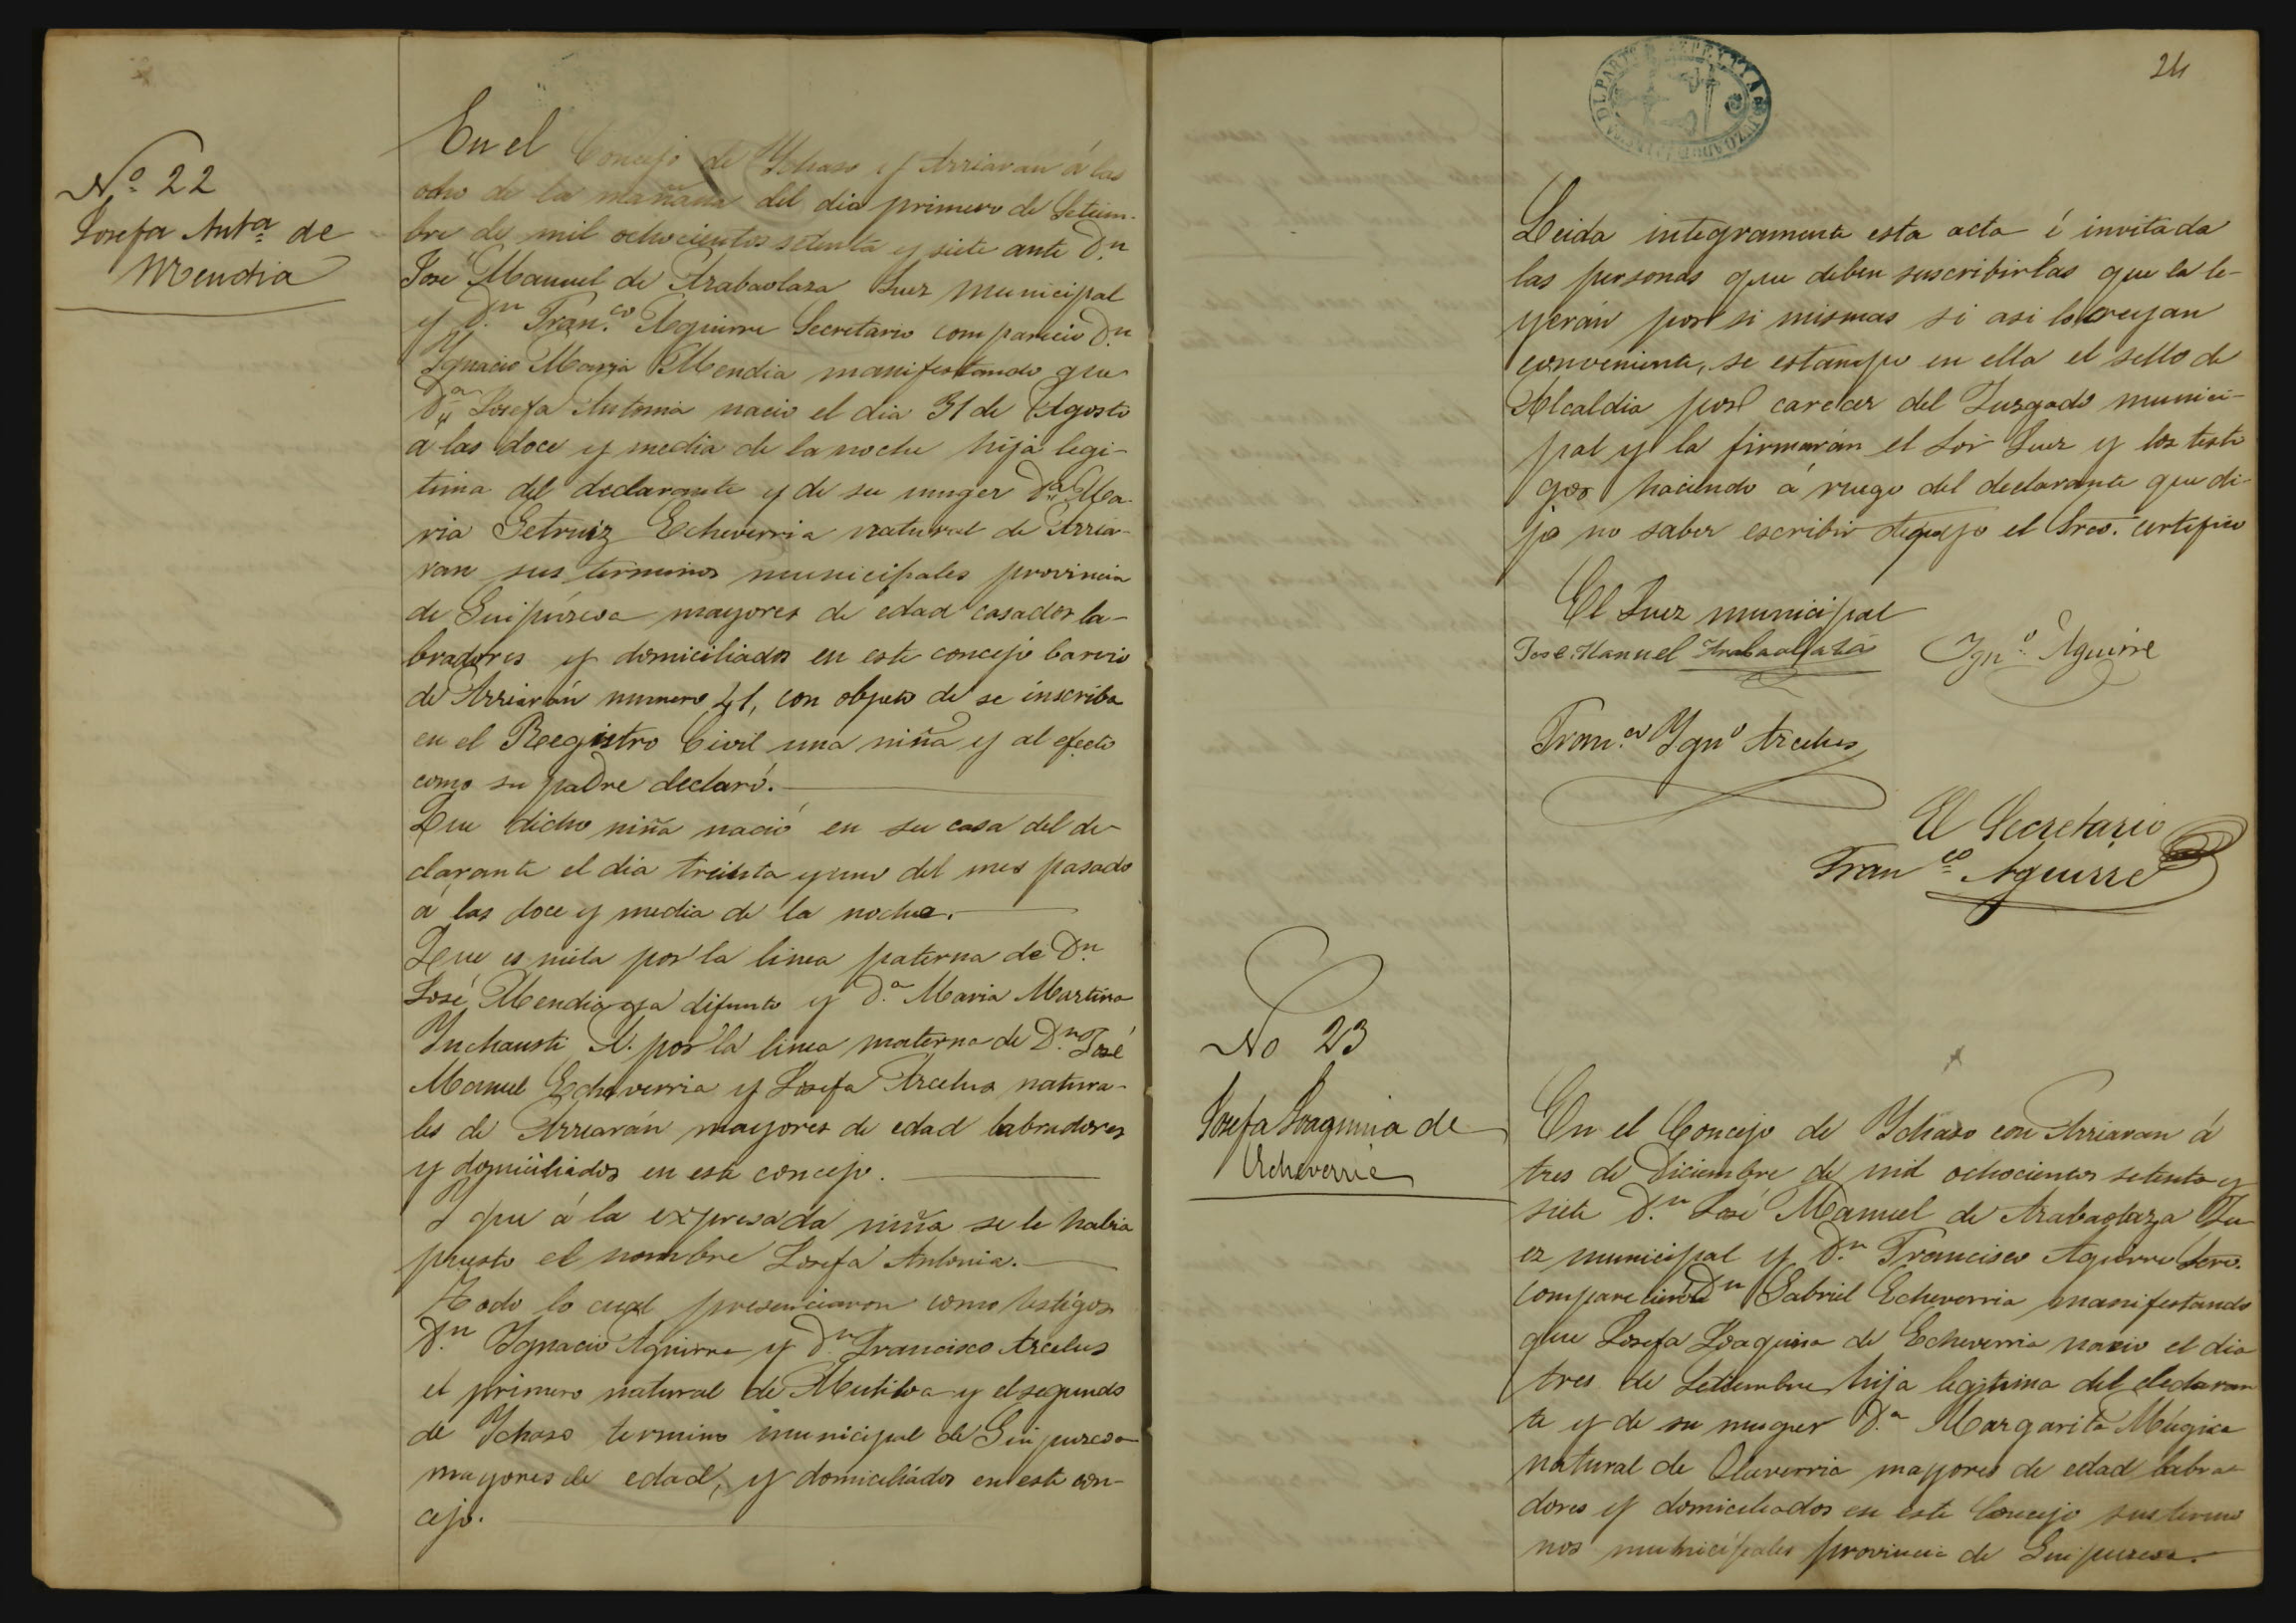 Nº 22
Josefa Antª de
Mendia
En el Concejo de Ychaso y Arriaran á las
ocho de la mañana del dia primero de Setiem-
bre de mil ochocientos setenta y siete ante Dn
José Manuel de Arabaolaza Juez Municipal
y Dn Fran.co Aguirre Secretario comparecio Dn
Ygnacio Maria Mendia manifestando que
Dª Josefa Antonia nacio el dia 31 de Agosto
a las doce y media de la noche hija legi-
tima del declarante y de su muger Dª Ma-
ria Getruiz Echeverria natural de Arria-
ran sus terminos municipales provincia
de Guipúzcoa mayores de edad casados la-
bradores y domiciliados en este concejo barrio
de Arriarán numero 41, con objeto de se inscriba
en el Reegistro Civil una niña y al efecto
como su padre declaró.
Que dicho niña nació en su casa del de-
clarante el dia treinta y uno del mes pasado
á las doce y media de la noche.
Que es nieta por la linea paterna de Dn
José Mendia ya difunto y D.ª Maria Martina
Ynchausti Y. por la linea materna de D.n José
Manuel Echeverria y Josefa Arcelus natura-
les de Arrearán mayores de edad labradores
y domiciliados en este concejo.
Y que á la expresada niña se le habia
puesto el nombre Josefa Antonia.
Todo lo cual presenciaron como testigos
D.n Ygnacio Aguirre y D.n Francisco Arcelus
el primero natural de Mutiloa y el segundo
de Ychaso termino municipal de Guipuzcoa
mayores de edad, y domiciliados en este con-
cejo.
24
JUZGADO
Leida integramente esta acta é invitada
las personas que deben suscribirlas que la le-
yerán por si mismas si asi lo creyan
conveniente, se estampo en ella el sello de
Alcaldia por carecer del Juzgado munici-
pal y la firmarán el Sor Juez y los testi
gos haciendo á ruego del declarante que di-
jo no saber escribir el Srco. certifico
El Juez municipal
Jose Manuel Arabaolaza
Ygn.º Aguirre
Fran.co Ygnº Arcelus
El Secretario
Franco Aguirre
No 23
Josefa Joaquina de
Echeverria
En el Concejo de Ychaso con Arriaran á
tres de Diciembre de mil ochocientos setenta y
siete D.n José Manuel de Arabaolaza Ju
ez municipal y D.n Francisco Aguirre Srco.
comparecieron Dn Gabriel Echeverria manifestando
que Josefa Joaquina de Echeverria nacio el dia
tres de Setiembre hija legitima del declaran
te y de su muger D.ª Margarita Múgica
natural de Olaverria mayores de edad labra-
dores y domiciliados en este Concejo sus termi
nos municipales provincia de Guipuzcoa.